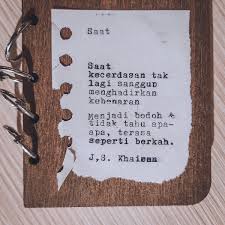 Saat
Saat
kecerdasan tak
lagi sanggup
menghadirkan
kebenaran
Menjadi bodoh &
tidak tahu apa-
apa, terasa
seperti berkah.
J,S. Khairen